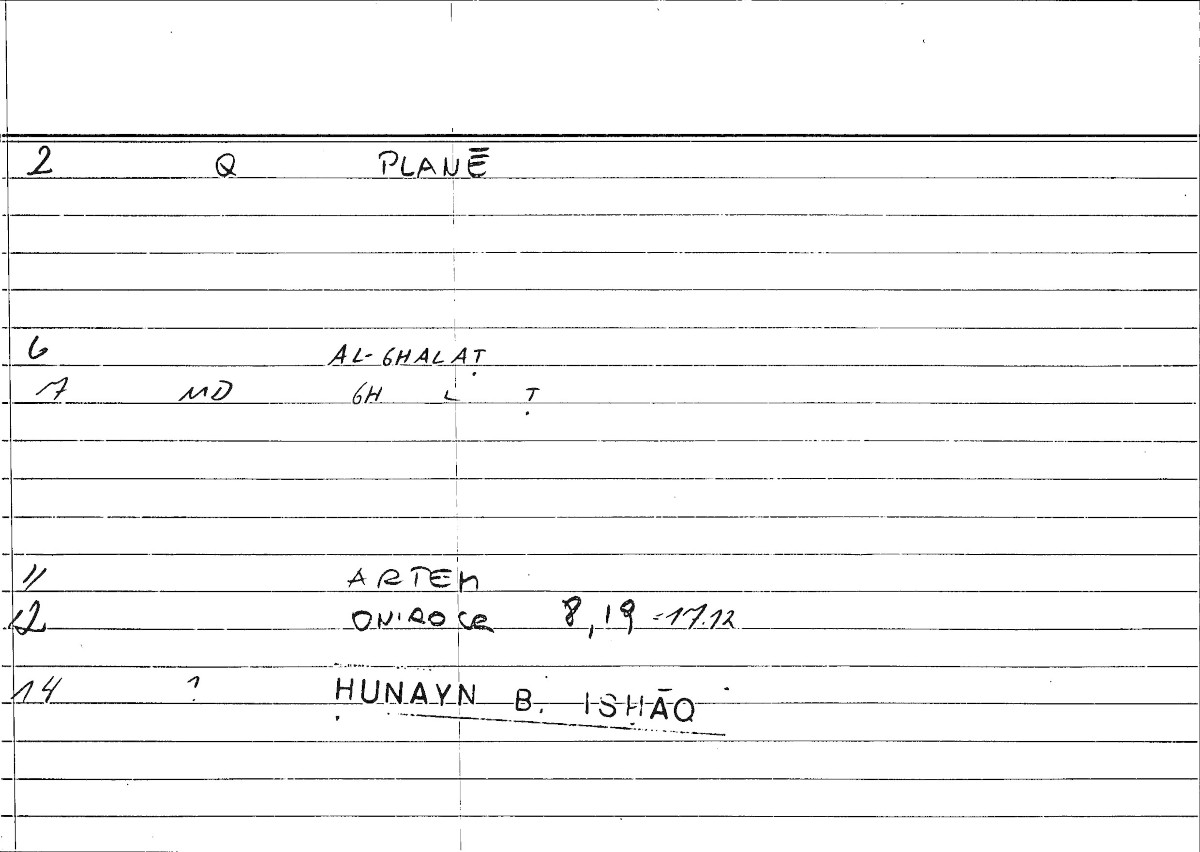 2 Q PLANĒ
6 AL-GHALAṬ
7 MD GH L Ṭ
11 ARTEM
12 ONIROCR 8,19 = 17.12
14 ? ḤUNAYN B. ISḤĀQ